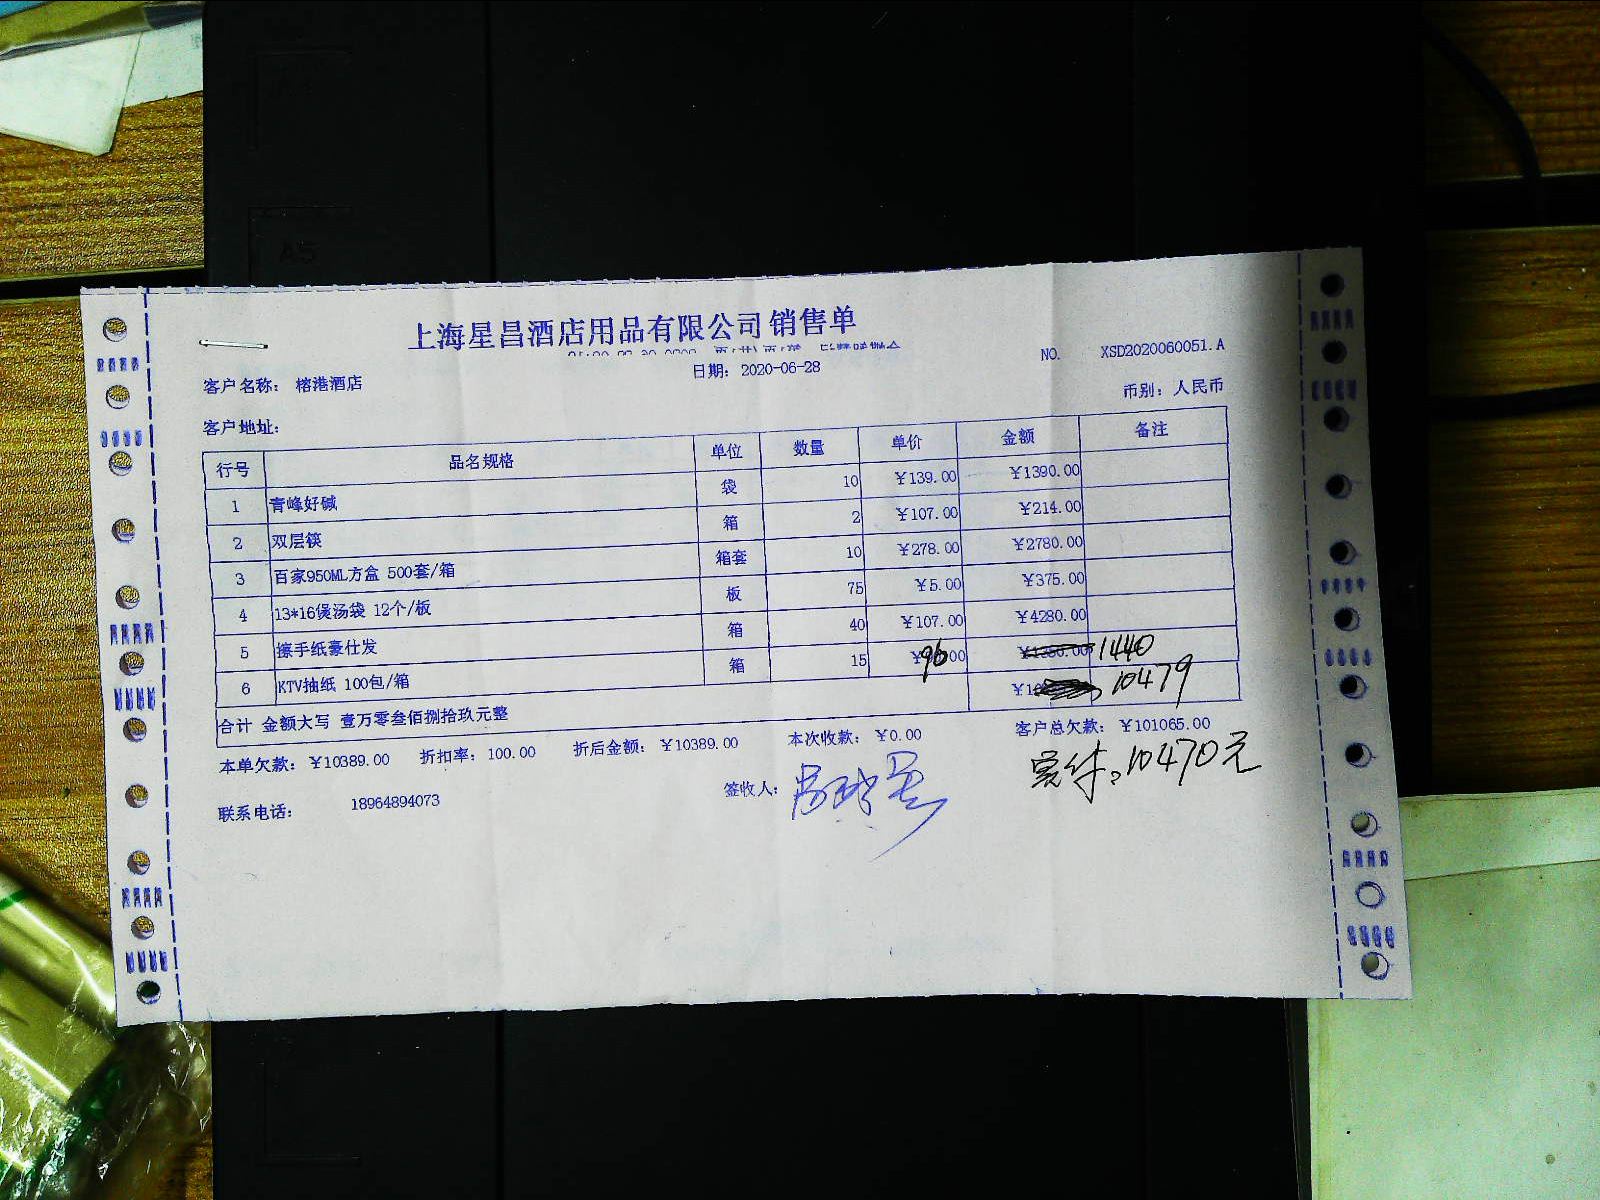 A5
上海星昌酒店用品有限公司 销售单
客户名称： 榕港酒店 日期：2020-06-28 NO. XSD2020060051.A
客户地址： 币别：人民币
行号 品名规格 单位 数量 单价 金额 备注
1 青峰好碱 袋 10 ¥139.00 ¥1390.00
2 双层筷 箱 2 ¥107.00 ¥214.00
3 百家950ML方盒 500套/箱 箱套 10 ¥278.00 ¥2780.00
4 13*16煲汤袋 12个/板 板 75 ¥5.00 ¥375.00
5 擦手纸豪仕发 箱 40 ¥107.00 ¥4280.00
6 KTV抽纸 100包/箱 箱 15 96 1440
合计 金额大写 壹万零叁佰捌拾玖元整 10479
本单欠款：¥10389.00 折扣率：100.00 折后金额：¥10389.00 本次收款：¥0.00 客户总欠款：¥101065.00
联系电话： 18964894073 签收人： 实付：10470元